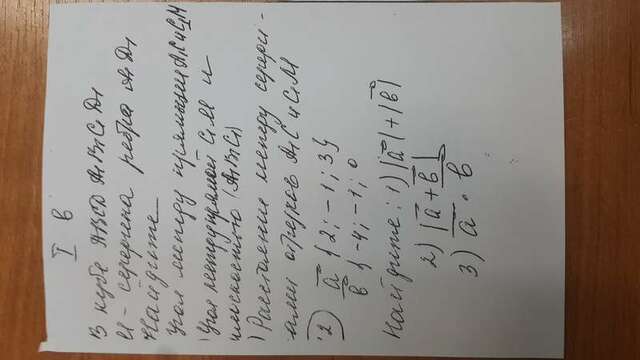 I в
В кубе ABCD A1B1C1D1
M - середина ребра A1D1
Найдите
Угол между прямыми A1C и C1M
) Угол между прямой C1M и
плоскостью (A1B1C1)
) Расстояние между середи-
нами отрезков A1C и C1M
2) a {2; -1; 3}
b {-4; -1; 0
Найдите: 1) |a| + |b|
2) |a + b|
3) a · b